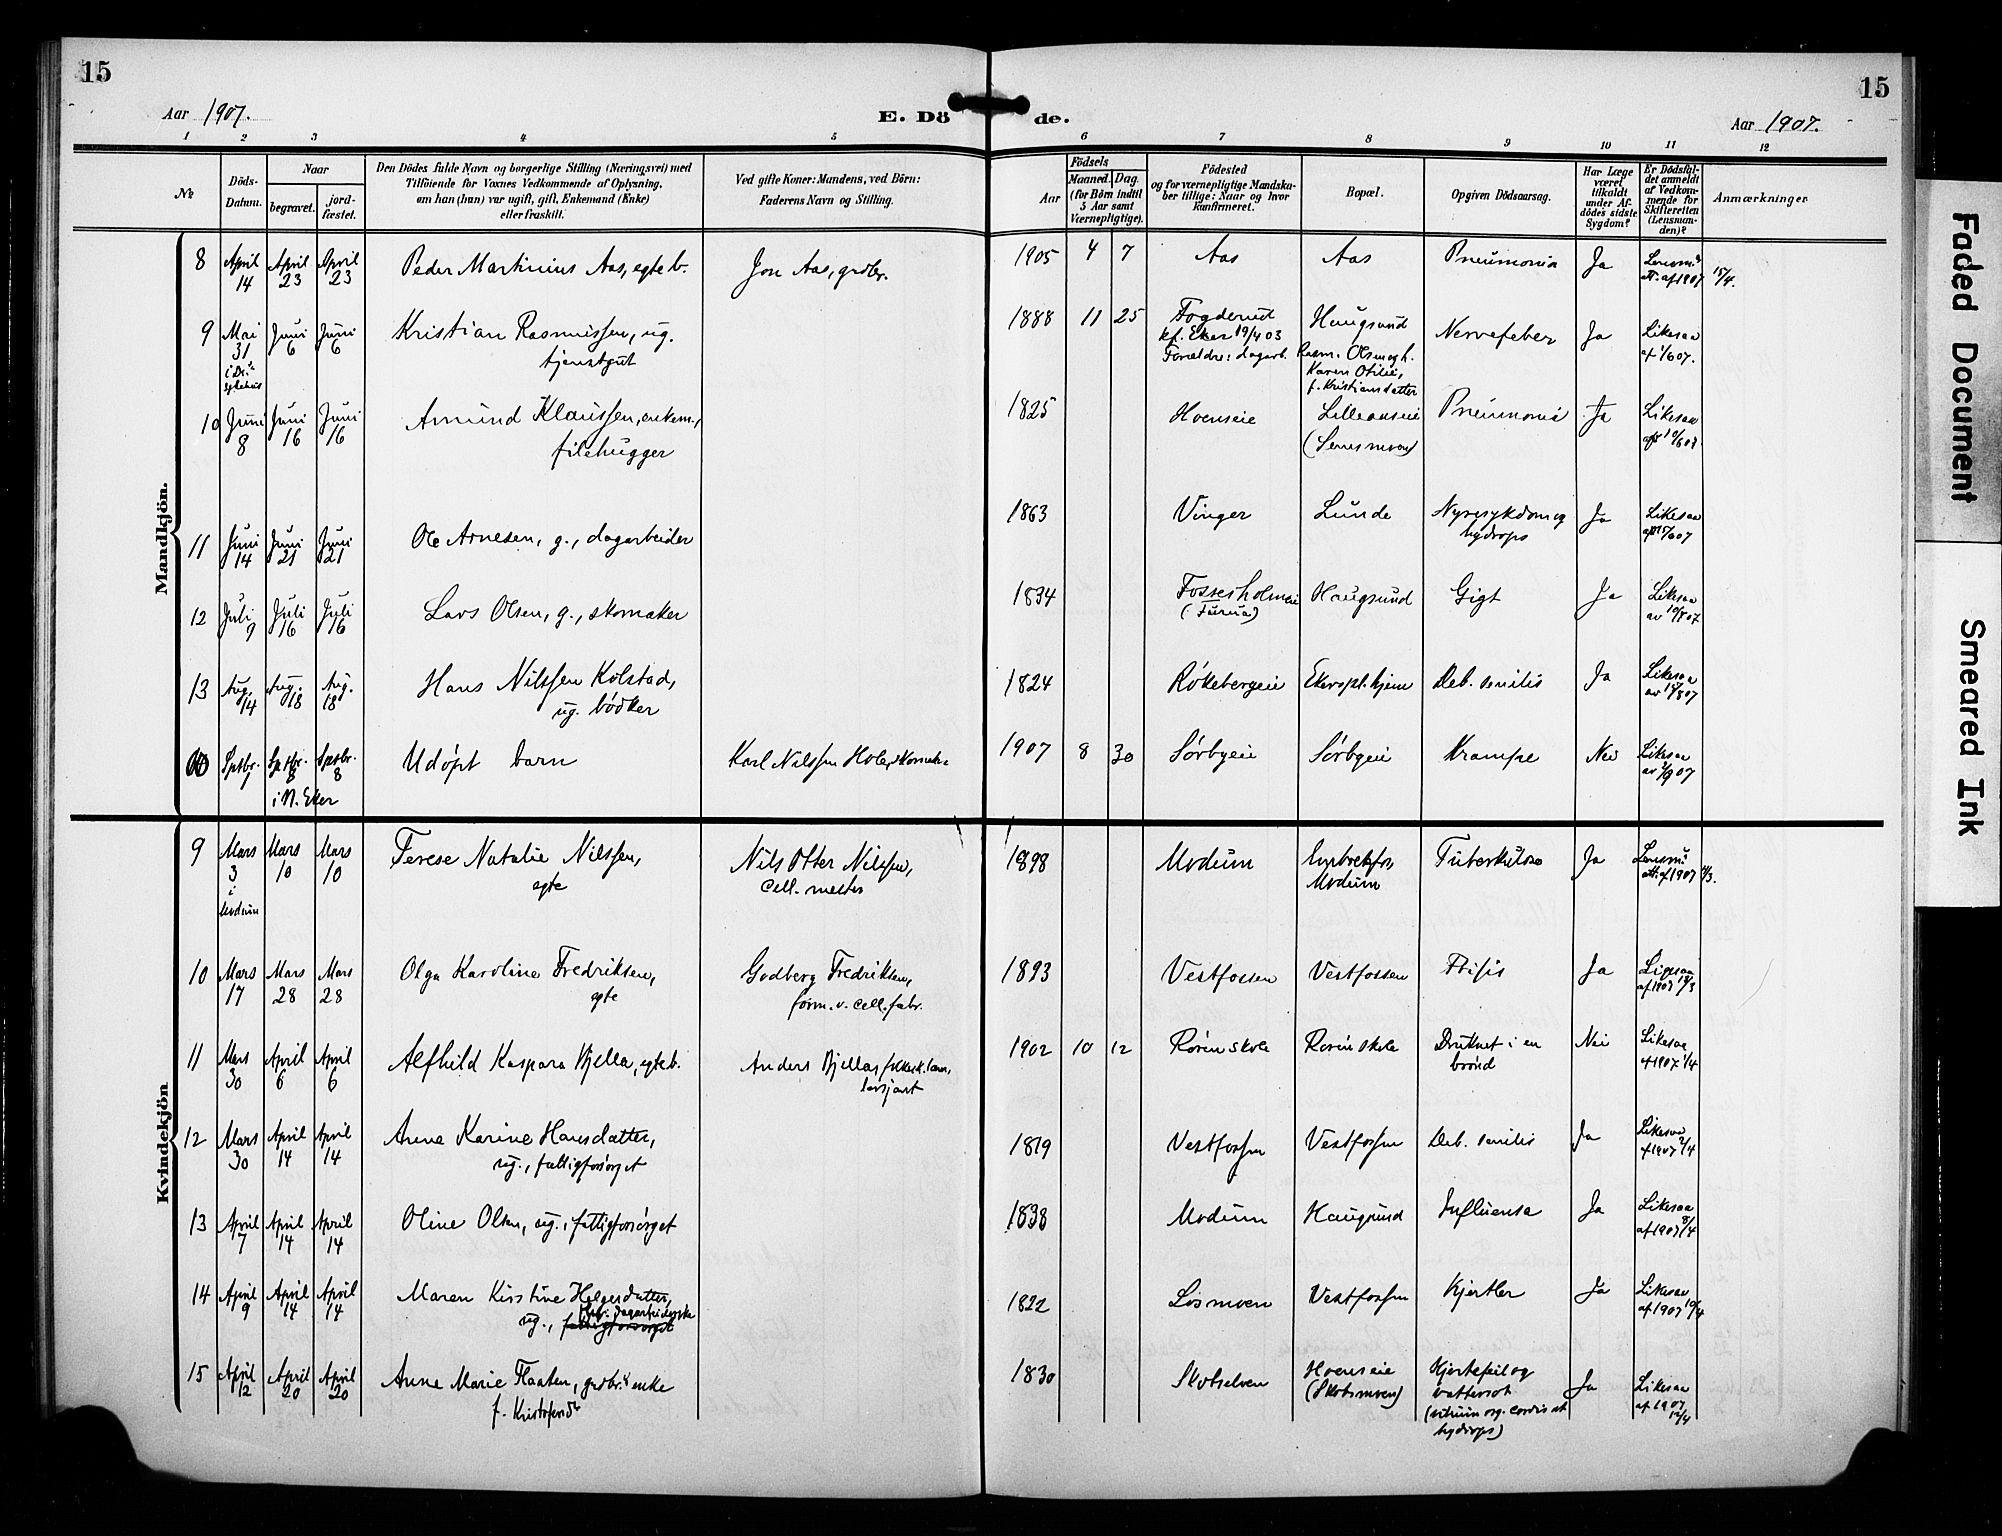 15
15
Aar 1907.
E. Dö
de.
Aar 1907.
1 2 3 4 5 6 7 8 9 10 11 12
No
Döds-
Datum.
Naar
begravet.
jord-
fæstet.
Den Dödes fulde Navn og borgerlige Stilling (Næringsvei) med
Tilföiende for Voxnes Vedkommende af Oplysning,
om han (hun) var ugift, gift, Enkemand (Enke)
eller fraskilt.
Ved gifte Koner: Mandens, ved Börn:
Faderens Navn og Stilling.
Födsels
Aar
Maaned. Dag.
(for Börn indtil
5 Aar samt
Værnepligtige).
Födested
og for værnepligtige Mandska-
ber tillige: Naar og hvor
konfirmeret.
Bopæl.
Opgiven Dödsaarsag.
Har Læge
været
tilkaldt
under Af-
dödes sidste
Sygdom?
Er Dödsfal-
det anmeldt
af Vedkom-
mende for
Skifteretten
(Lensman-
den)?
Anmærkninger
Mandkjön.
8 April 14 April 23 April 23 Peder Martinius Aas, egte b. Jon Aas, grdbr. 1905 4 7 Aas Aas Pneumonia Ja Lensm. att. af 1907 15/4.
9 Mai 31 Juni 6 Juni 6 Kristian Rasmussen, ug. 1888 11 25 Fogderud Haugsund Nervefeber Ja Likesaa af 1/6 07.
tjenestgut kf. Eker 19/4 03
Forældre: dagarb. Rasm. Olsen og h.
Karen Otilie,
f. Kristiansdatter
10 Juni 8 Juni 16 Juni 16 Amund Klaussen, enkem., 1825 Hoenseie Lilleaaseie Pneumonia Ja Likesaa 10/6 07.
filehugger
11 Juni 14 Juni 21 Juni 21 Ole Arnesen, g., dagarbeider 1863 Vinger Lunde Nyresykdom og Ja Likesaa 15/6 07
hydrops
12 Juli 9 Juli 16 Juli 16 Lars Olsen, g., skomaker 1834 Fossesholmeie Haugsund Gigt Ja Likesaa av 10/8 07
(Furua)
13 Aug. 14 Aug. 18 Aug. 18 Hans Nilssen Kolstad, 1824 Røkebergeie Ekers pl.hjem Deb. senilis Ja Likesaa
ug. bødker
Sptbr. 1 Sptbr. 8 Sptbr. 8 Udøpt barn Karl Nilssen Hole, skomaker 1907 8 30 Sørbyeie Sørbyeie Krampe Nei Likesaa
i N. Eker
Kvindekjön
9 Mars 3 Mars 10 Mars 10 Terese Natalie Nilssen, Nils Otter Nilssen, 1898 Modum Embretsfos, Tuberkulose Ja Lensm. att. af 1907
i Modum egte cell. mester Modum
10 Mars 17 Mars 28 Mars 28 Olga Karoline Fredriksen, Godberg Fredriksen, 1893 Vestfossen Vestfossen Ftisis Ja
egte form. v. cell. fabr.
11 Mars 30 April 6 April 6 Alfhild Kaspara Bjella, egte b. Anders Bjella, 1902 10 12 Roren skole Roren skole Druknet i en Nei Likesaa af 1907 1/4
brønd
12 Mars 30 April 14 April 14 Anne Karine Hansdatter, 1819 Vestfossen Vestfossen Deb. senilis Ja Likesaa af 1907 2/4
ug., fattigforsørget
13 April 7 April 14 April 14 Oline Olsen, ug., fattigforsørget 1838 Modum Haugsund Influensa Ja Likesaa af 1907 8/4
14 April 9 April 14 April 14 Maren Kirstine Helgesdatter, 1822 Losmoen Vestfossen Kjertler Ja Likesaa af 1907 10/4
ug., dagarbeiderske
fattigforsørget
15 April 12 April 20 April 20 Anne Marie Flaaten, grdbr.s enke 1830 Skotselven Hoenseie Kjertefeil og Ja Likesaa af 1907 12/4
f. Kristofersdr (Skotsmoen) vattersot
(vitium org. cordis et
hydrops)
Faded Document
Smeared Ink